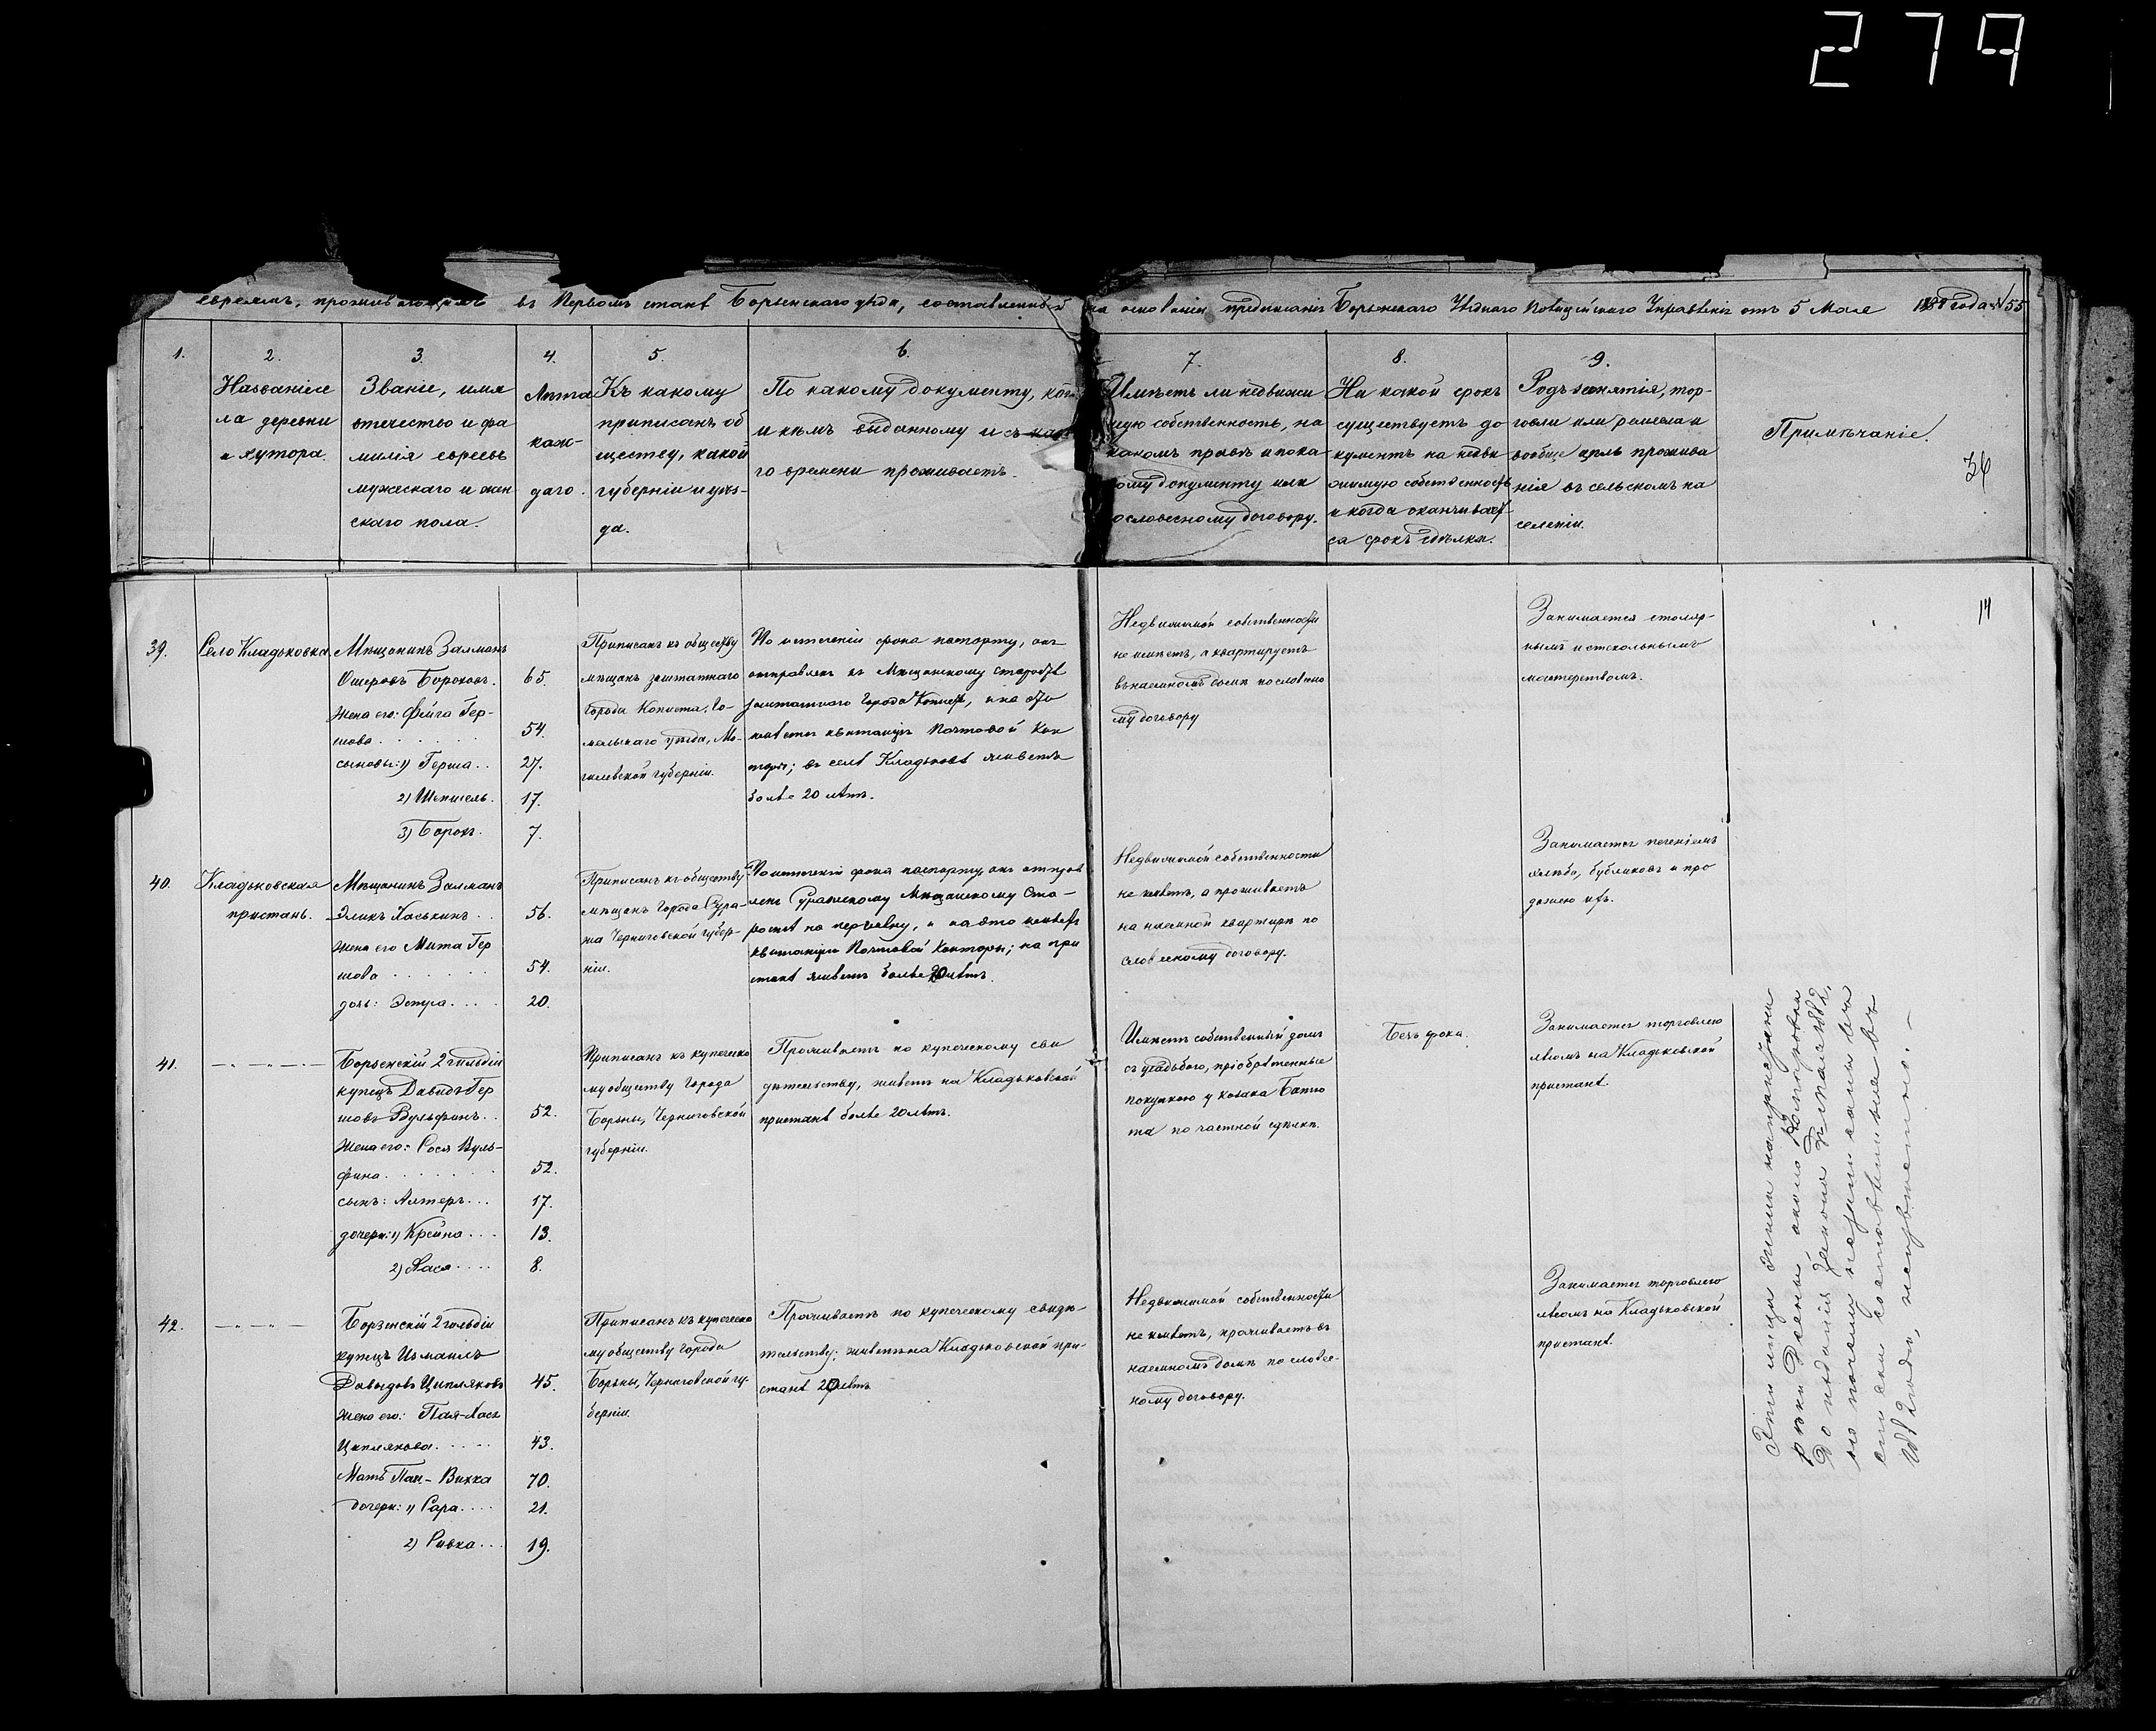 279
евреямъ, проживающимъ въ Первомъ станѣ Борзенскаго уѣзда, составленный на основаніи предписанія Борзенскаго Уѣзднаго Полицейскаго Управленія отъ 5 Мая года № 55
1.
2.
Названіе се
ла деревни
и хутора.
3.
Званіе, имя
отчество и фа
милія евреевъ
мужескаго и жен
скаго пола.
4.
Лѣта
каж-
даго.
5.
Къ какому
приписанъ об
ществу, какой
губерніи и уѣз-
да.
6.
По какому документу,
и кѣмъ выданному и съ
го времени проживаетъ.
7.
Имѣетъ ли недвижи
мую собственность, на
какомъ правѣ и по ка
кому документу или
словесному договору.
8.
На какой срокъ
существуетъ до
кументъ на недви
жимую собственность
и когда оканчивает
ся срокъ сдѣлки.
9.
Родъ занятія, тор-
говли или ремесла и
вообще цѣль прожива
нія въ сельскомъ на
селеніи.
Примѣчаніе.
36
14
39.
Село Кладьковка
Мѣщанинъ Залманъ
Ошеровъ Бороховъ. 65.
Жена его: Фейга Гер-
шова . . . . . . 54.
сыновья: 1) Герша . . 27.
2) Шепшель. 17.
3) Борохъ. 7.
Приписанъ къ обществу
мѣщанъ заштатнаго
Города Копыста, Го-
мельскаго уѣзда, Мо-
гилевской губерніи.
По истеченіи срока паспорту, онъ
отправленъ къ Мѣщанскому Старостѣ
заштатнаго Города, и на это
имѣетъ квитанцію Почтовой Кон
торы; въ селѣ Кладьковкѣ живетъ
болѣе 20 лѣтъ.
Недвижимой собственности
не имѣетъ, а квартируетъ
въ наемномъ домѣ по словесно
му договору
Занимается столяр-
нымъ и стекольнымъ
мастерствомъ.
40.
Кладьковская
пристань.
Мѣщанинъ Залманъ
Эликъ Хаськинъ . . 56.
жена его Мита Гер
шова . . . . . . 54.
дочь: Эстра . . . . 20.
Приписанъ къ обществу
мѣщанъ Города Сура-
жа Черниговской губер-
ніи.
По истеченіи срока паспорту онъ отправ
ленъ Суражскому Мѣщанскому Ста-
ростѣ на перемѣну, и на это имѣетъ
квитанцію Почтовой Конторы; на при
станѣ живетъ болѣе 20 лѣтъ.
Недвижимой собственности
не имѣетъ, а проживаетъ
на наемной квартирѣ по
словесному договору.
Занимается печеніемъ
хлѣба, бубликовъ и про
дажею ихъ.
41.
Борзенскій 2 гильдіи
купецъ Давидъ Гер
шовъ Вульфинъ. . 52.
Жена его: Сося Вуль-
фина . . . . . . 52.
сынъ: Алтеръ . . . 17.
дочери: 1) Крейна . . . 13.
2) Хася . . . . 8.
Приписанъ къ купеческо
му обществу Города
Борзны, Черниговской
губерніи.
Проживаетъ по купеческому сви
дѣтельству, живетъ на Кладьковской
пристанѣ болѣе 20 лѣтъ.
Имѣетъ собственный домъ
съ усадьбою, пріобрѣтенные
покупкою у козака
по частной сдѣлкѣ.
Безъ срока.
Занимается торговлею
лѣсомъ на Кладьковской
пристанѣ.
42.
Борзенскій 2 гильдіи
купецъ Измаилъ
Давыдовъ Цыпляковъ 45.
жена его: Пая-Хася
Цыплякова . . . . . 43.
Мать Пая-Вихка 70.
дочери: 1) Сара . . . . 21.
2) Ривка . . . 19.
Приписанъ къ купеческо
му обществу Города
Борзны, Черниговской гу-
берніи.
Проживаетъ по купеческому свидѣ-
тельству; живетъ на Кладьковской при-
станѣ 20 лѣтъ
Недвижимой собственности
не имѣетъ, проживаетъ въ
наемномъ домѣ по словес-
ному договору.
Занимается торговлею
лѣсомъ на Кладьковской
пристанѣ.
Эти лица
рѣки Десны, около
до изданія закона 3 мая 1882,
но почему
составленномъ въ
1882 году, неизвѣстно. –